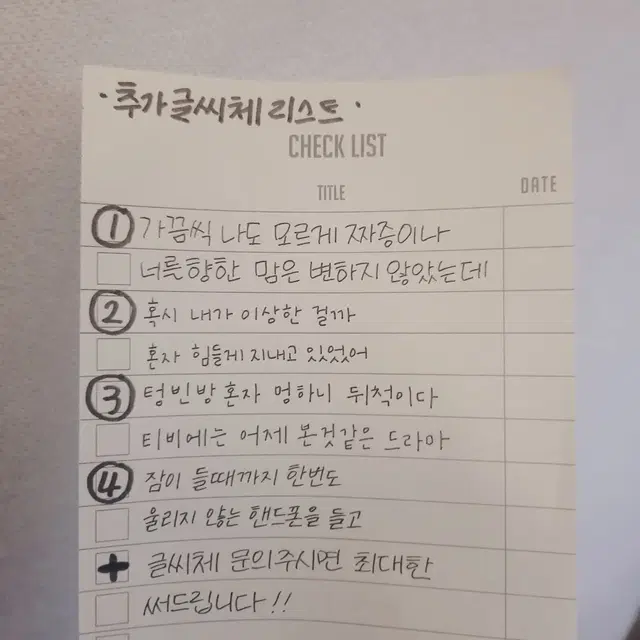 · 추가글씨체 리스트 ·
CHECK LIST
TITLE DATE
① 가끔씩 나도 모르게 짜증이나
너를향한 맘은 변하지 않았는데
② 혹시 내가 이상한 걸까
혼자 힘들게 지내고 있었어
③ 텅빈방 혼자 멍하니 뒤척이다
티비에는 어제 본것같은 드라마
④ 잠이 들때까지 한번도
울리지 않는 핸드폰을 들고
+ 글씨체 문의주시면 최대한
써드립니다!!